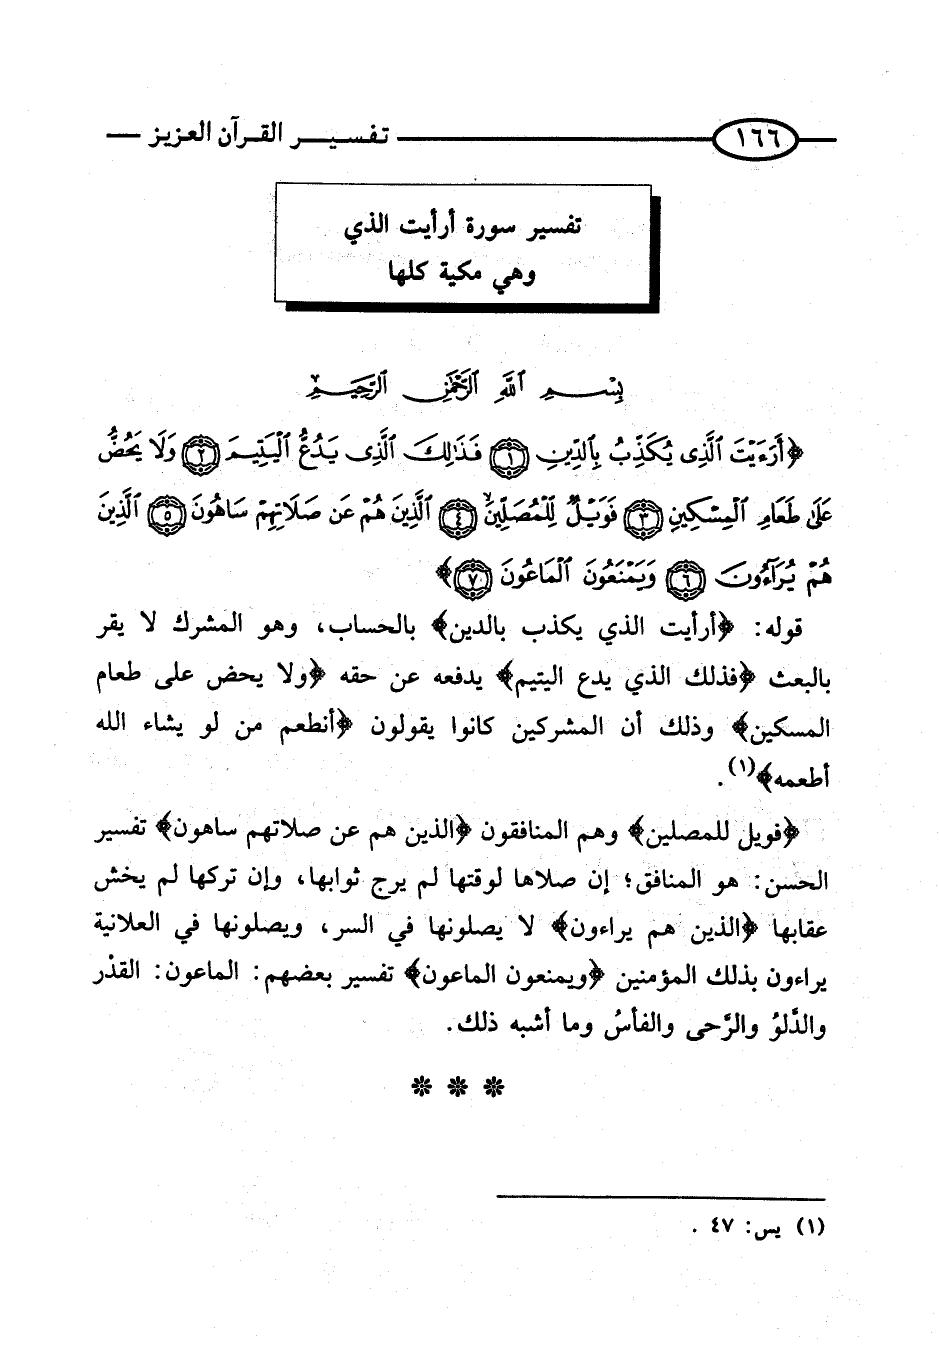 ١٦٦ تفسير القرآن العزيز
تفسير سورة أرأيت الذي
وهي مكية كلها
بِسْمِ اللَّهِ الرَّحْمَٰنِ الرَّحِيمِ
﴿أَرَءَيْتَ الَّذِى يُكَذِّبُ بِالدِّينِ ١ فَذَٰلِكَ الَّذِى يَدُعُّ الْيَتِيمَ ٢ وَلَا يَحُضُّ
عَلَىٰ طَعَامِ الْمِسْكِينِ ٣ فَوَيْلٌ لِّلْمُصَلِّينَ ٤ الَّذِينَ هُمْ عَن صَلَاتِهِمْ سَاهُونَ ٥ الَّذِينَ
هُمْ يُرَآءُونَ ٦ وَيَمْنَعُونَ الْمَاعُونَ ٧﴾
قوله: ﴿أرأيت الذي يكذب بالدين﴾ بالحساب، وهو المشرك لا يقر
بالبعث ﴿فذلك الذي يدع اليتيم﴾ يدفعه عن حقه ﴿ولا يحض على طعام
المسكين﴾ وذلك أن المشركين كانوا يقولون ﴿أنطعم من لو يشاء الله
أطعمه﴾(١).
﴿فويل للمصلين﴾ وهم المنافقون ﴿الذين هم عن صلاتهم ساهون﴾ تفسير
الحسن: هو المنافق؛ إن صلاها لوقتها لم يرج ثوابها، وإن تركها لم يخش
عقابها ﴿الذين هم يراءون﴾ لا يصلونها في السر، ويصلونها في العلانية
يراءون بذلك المؤمنين ﴿ويمنعون الماعون﴾ تفسير بعضهم: الماعون: القدْر
والدَّلوُ والرَّحى والفأسُ وما أشبه ذلك.
(١) يس: ٤٧ .